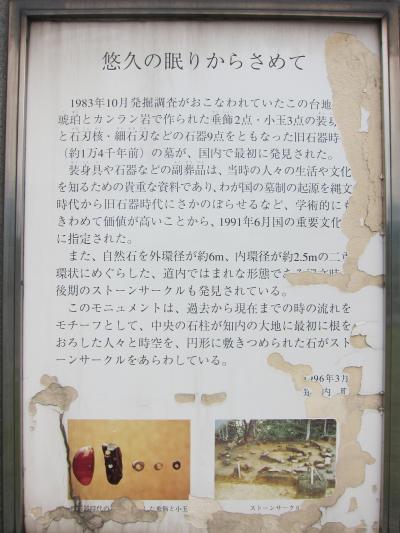 悠久の眠りからさめて
1983年10月発掘調査がおこなわれていたこの台地
琥珀とカンラン岩で作られた垂飾2点・小玉3点の装
と石刃核・細石刃などの石器9点をともなった旧石器時
（約1万4千年前）の墓が、国内で最初に発見された。
装身具や石器などの副葬品は、当時の人々の生活や文化
を知るための貴重な資料であり、わが国の墓制の起源を縄文
時代から旧石器時代にさかのぼらせるなど、学術的に
きわめて価値が高いことから、1991年6月国の重要文化
に指定された。
また、自然石を外環径が約6m、内環径が約2.5mの二
環状にめぐらした、道内ではまれな形態で
後期のストーンサークルも発見されている。
このモニュメントは、過去から現在までの時の流れを
モチーフとして、中央の石柱が知内の大地に最初に根を
おろした人々と時空を、円形に敷きつめられた石がスト
ーンサークルをあらわしている。
996年3月
内町
した垂飾と小玉
ストーンサークル